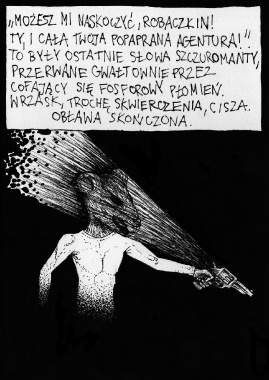 „MOŻESZ MI NASKOCZYĆ, ROBACZKIN!
TY, I CAŁA TWOJA POPAPRANA AGENTURA!”
TO BYŁY OSTATNIE SŁOWA SZCZUROMANTY,
PRZERWANE GWAŁTOWNIE PRZEZ
COFAJĄCY SIĘ FOSFOROWY PŁOMIEŃ.
WRZASK, TROCHĘ SKWIERCZENIA, CISZA.
OBŁAWA SKOŃCZONA.